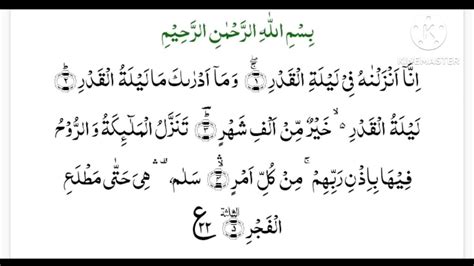 بِسْمِ اللّٰهِ الرَّحْمٰنِ الرَّحِيْمِ
KINEMASTER
اِنَّاۤ اَنْزَلْنٰهُ فِيْ لَيْلَةِ الْقَدْرِ ۚۖ‏﴿۱﴾ وَمَاۤ اَدْرٰىكَ مَا لَيْلَةُ الْقَدْرِ ؕ‏﴿۲﴾
لَيْلَةُ الْقَدْرِ ۙ خَيْرٌ مِّنْ اَلْفِ شَهْرٍ ؕ‏﴿۳﴾ تَنَزَّلُ الْمَلٰٓئِكَةُ وَ الرُّوْحُ
فِيْهَا بِاِذْنِ رَبِّهِمْ ۚ مِنْ كُلِّ اَمْرٍ ۙۛ‏﴿۴﴾ سَلٰمٌ ۛ هِيَ حَتّٰى مَطْلَعِ
الْفَجْرِ ﴿۵﴾ ع ۲۲